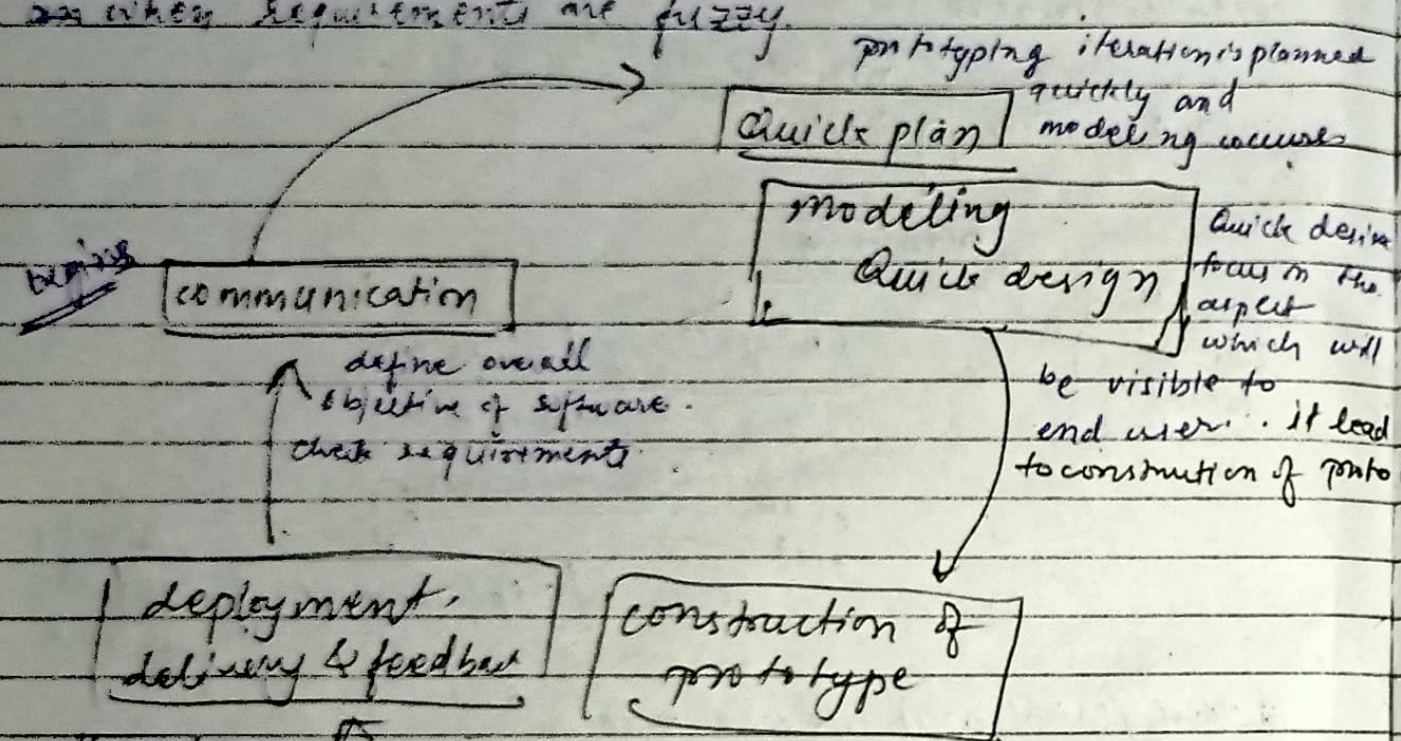 when requirements are fuzzy.
prototyping iteration is planned
quickly and
modeling occurs
Quick plan
modeling
Quick design
Quick desi
focus on the
aspect
which will
be visible to
end user. it lead
to construction of proto
communication
define overall
objective of software.
check requirements
deployment,
delivery & feedback
construction of
prototype